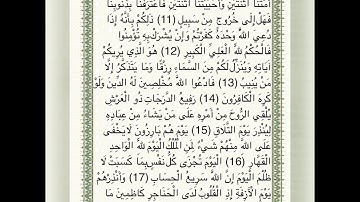 أَمَتَّنَا اثْنَتَيْنِ وَأَحْيَيْتَنَا اثْنَتَيْنِ فَاعْتَرَفْنَا بِذُنُوبِنَا
فَهَلْ إِلَى خُرُوجٍ مِنْ سَبِيلٍ (11) ذَلِكُمْ بِأَنَّهُ إِذَا
دُعِيَ اللَّهُ وَحْدَهُ كَفَرْتُمْ وَإِنْ يُشْرَكْ بِهِ تُؤْمِنُوا
فَالْحُكْمُ لِلَّهِ الْعَلِيِّ الْكَبِيرِ (12) هُوَ الَّذِي يُرِيكُمْ
آيَاتِهِ وَيُنَزِّلُ لَكُمْ مِنَ السَّمَاءِ رِزْقًا وَمَا يَتَذَكَّرُ إِلَّا
مَنْ يُنِيبُ (13) فَادْعُوا اللَّهَ مُخْلِصِينَ لَهُ الدِّينَ وَلَوْ
كَرِهَ الْكَافِرُونَ (14) رَفِيعُ الدَّرَجَاتِ ذُو الْعَرْشِ
يُلْقِي الرُّوحَ مِنْ أَمْرِهِ عَلَى مَنْ يَشَاءُ مِنْ عِبَادِهِ
لِيُنْذِرَ يَوْمَ التَّلَاقِ (15) يَوْمَ هُمْ بَارِزُونَ لَا يَخْفَى
عَلَى اللَّهِ مِنْهُمْ شَيْءٌ لِمَنِ الْمُلْكُ الْيَوْمَ لِلَّهِ الْوَاحِدِ
الْقَهَّارِ (16) الْيَوْمَ تُجْزَى كُلُّ نَفْسٍ بِمَا كَسَبَتْ لَا
ظُلْمَ الْيَوْمَ إِنَّ اللَّهَ سَرِيعُ الْحِسَابِ (17) وَأَنْذِرْهُمْ
يَوْمَ الْآزِفَةِ إِذِ الْقُلُوبُ لَدَى الْحَنَاجِرِ كَاظِمِينَ مَا